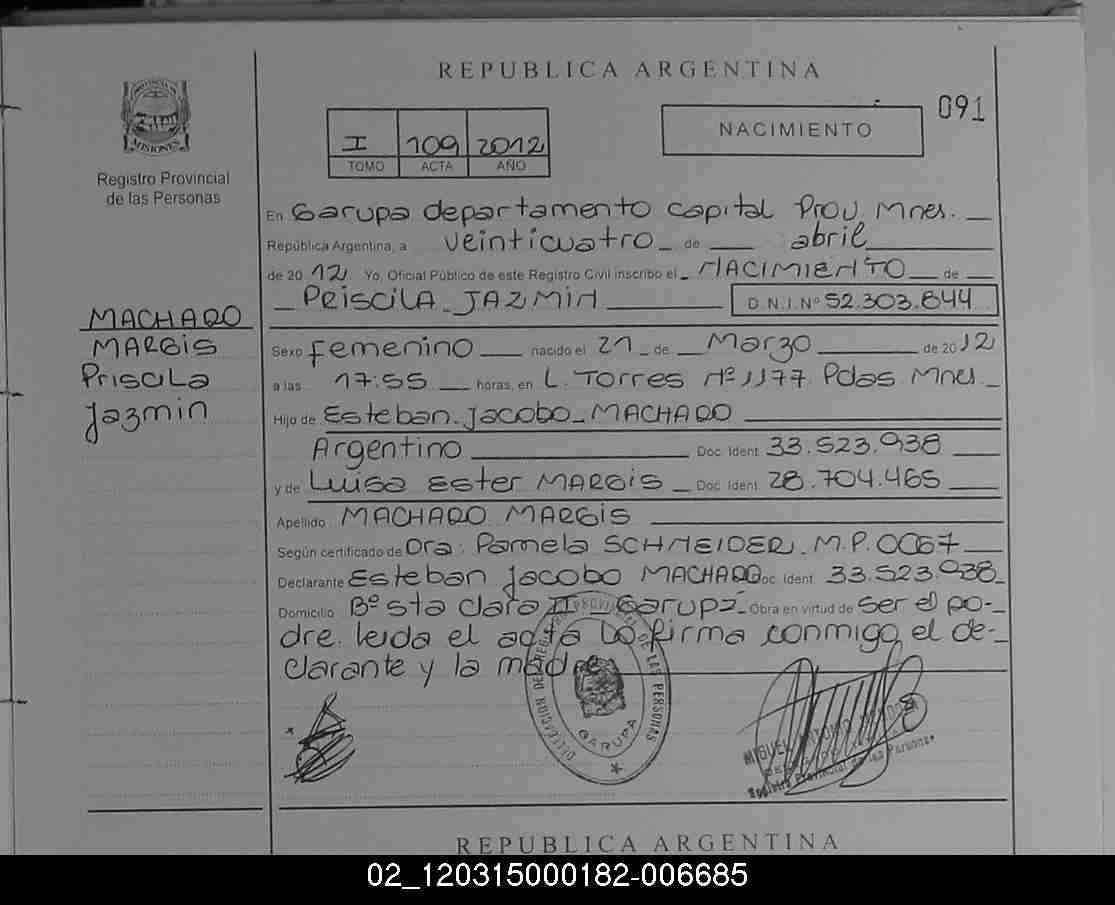 REPUBLICA ARGENTINA
091
NACIMIENTO
I 109 2012
TOMO ACTA AÑO
PROVINCIA DE
MISIONES
Registro Provincial
de las Personas
MACHADO
MARGIS
Priscila
Jazmin
En Garupa departamento capital Prov. Mnes.
República Argentina, a veinticuatro de abril
de 2012 Yo, Oficial Público de este Registro Civil inscribo el NACIMIENTO de
PRISCILA JAZMIN D.N.I.Nº 52.303.844
Sexo femenino nacido el 21 de Marzo de 2012
a las 17:55 horas, en L. Torres Nº 1177 Pdas Mnes.
Hijo de Esteban Jacobo MACHADO
Argentino Doc. Ident 33.523.938
y de Luisa Ester MARGIS Doc. Ident 28.704.465
Apellido MACHADO MARGIS
Según certificado de Dra. Pamela SCHNEIDER. M.P. 0067
Declarante Esteban Jacobo MACHADO Doc. Ident 33.523.938
Domicilio Bº Sta Clara II - Garupá Obra en virtud de ser el pa-
dre. leida el acta lo firma conmigo el de-
clarante y la madre
DELEGACION DEL REGISTRO PROVINCIAL DE LAS PERSONAS
GARUPA
MIGUEL ANTONIO
Registro Provincial de las Personas
REPUBLICA ARGENTINA
02_120315000182-006685